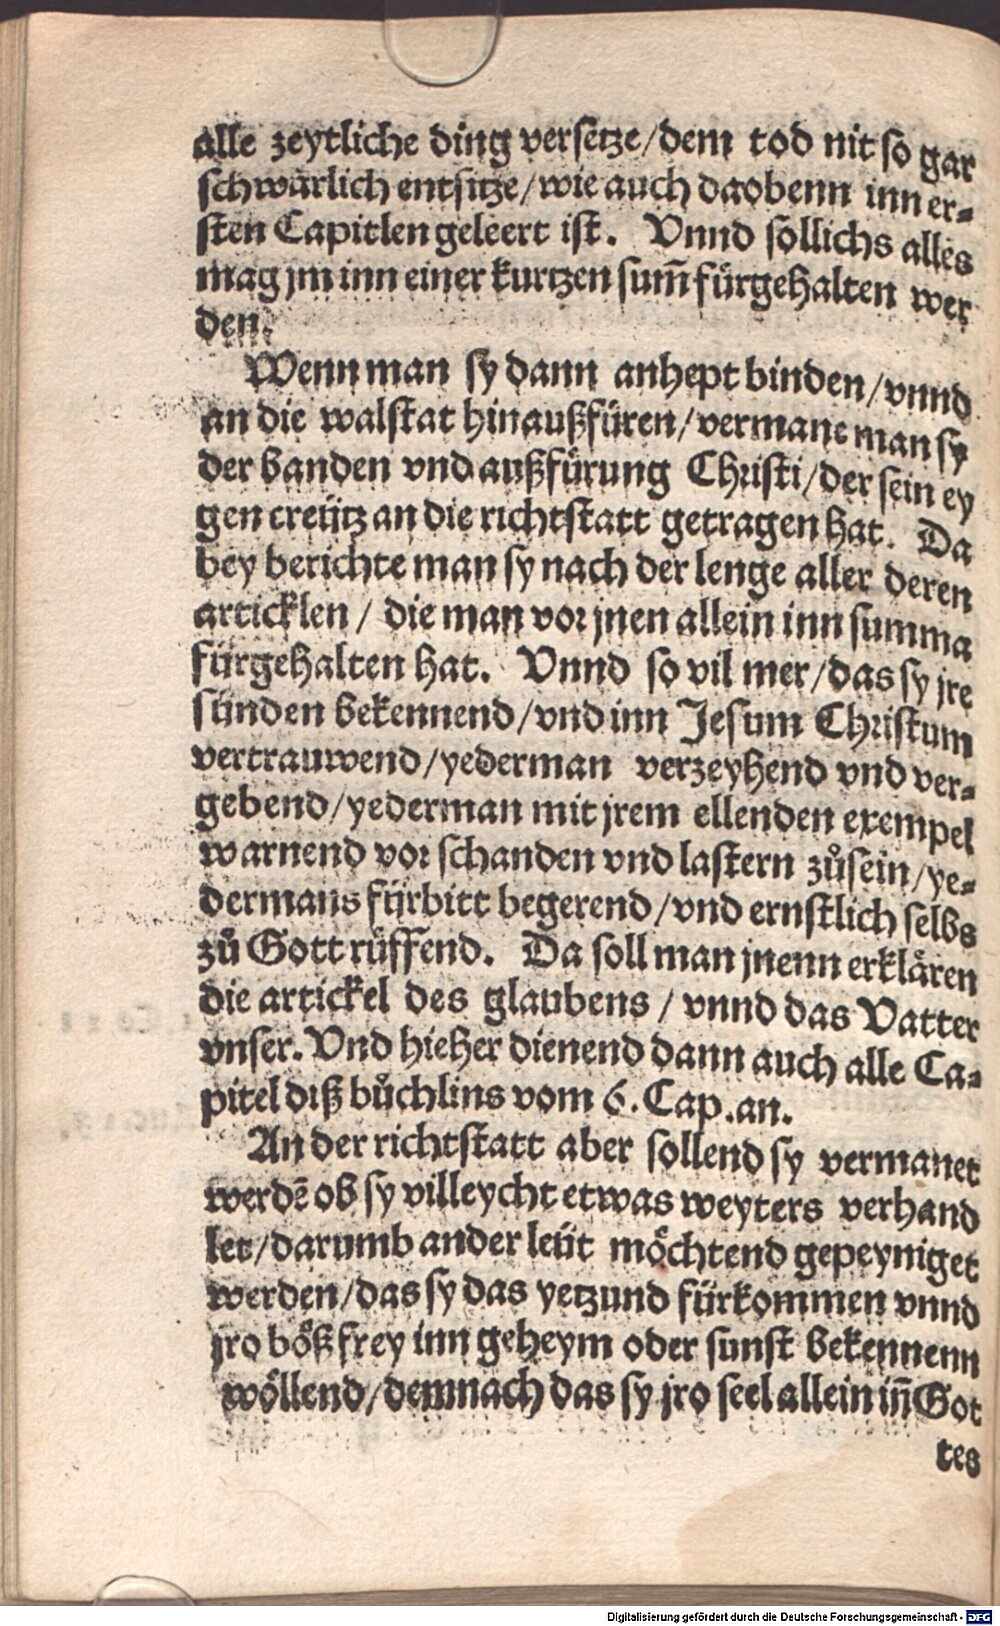 alle zeytliche ding versetze/dem tod nit so gar
schwärlich entsitze/wie auch daobenn inn er-
sten Capitlen geleert ist. Vnnd sollichs alles
mag jm inn einer kurtzen sum̄ fürgehalten wer
den.
Wenn man sy dann anhept binden/vnnd
an die walstat hinaußfüren/vermane man sy
der banden vnd außfürung Christi/der sein ey
gen creütz an die richtstatt getragen hat. Da
bey berichte man sy nach der lenge aller deren
articklen / die man vor jnen allein inn summa
fürgehalten hat. Vnnd so vil mer/das sy jre
sünden bekennend/vnd inn Jesum Christum
vertrauwend/yederman verzeyhend vnd ver-
gebend/yederman mit jrem ellenden exempel
warnend vor schanden vnd lastern zůsein/ye-
dermans fürbitt begerend/vnd ernstlich selbs
zů Gott rüffend. Da soll man jnenn erklären
die artickel des glaubens / vnnd das Vatter
vnser. Vnd hieher dienend dann auch alle Ca-
pitel diß bůchlins vom 6. Cap.an.
An der richtstatt aber sollend sy vermanet
werdē ob sy villeycht etwas weyters verhand
let/darumb ander leüt möchtend gepeyniget
werden/das sy das yetzund fürkommen vnnd
jro böß frey inn geheym oder sunst bekennenn
wöllend/demnach das sy jro seel allein in̄ Got
tes
Digitalisierung gefördert durch die Deutsche Forschungsgemeinschaft - DFG